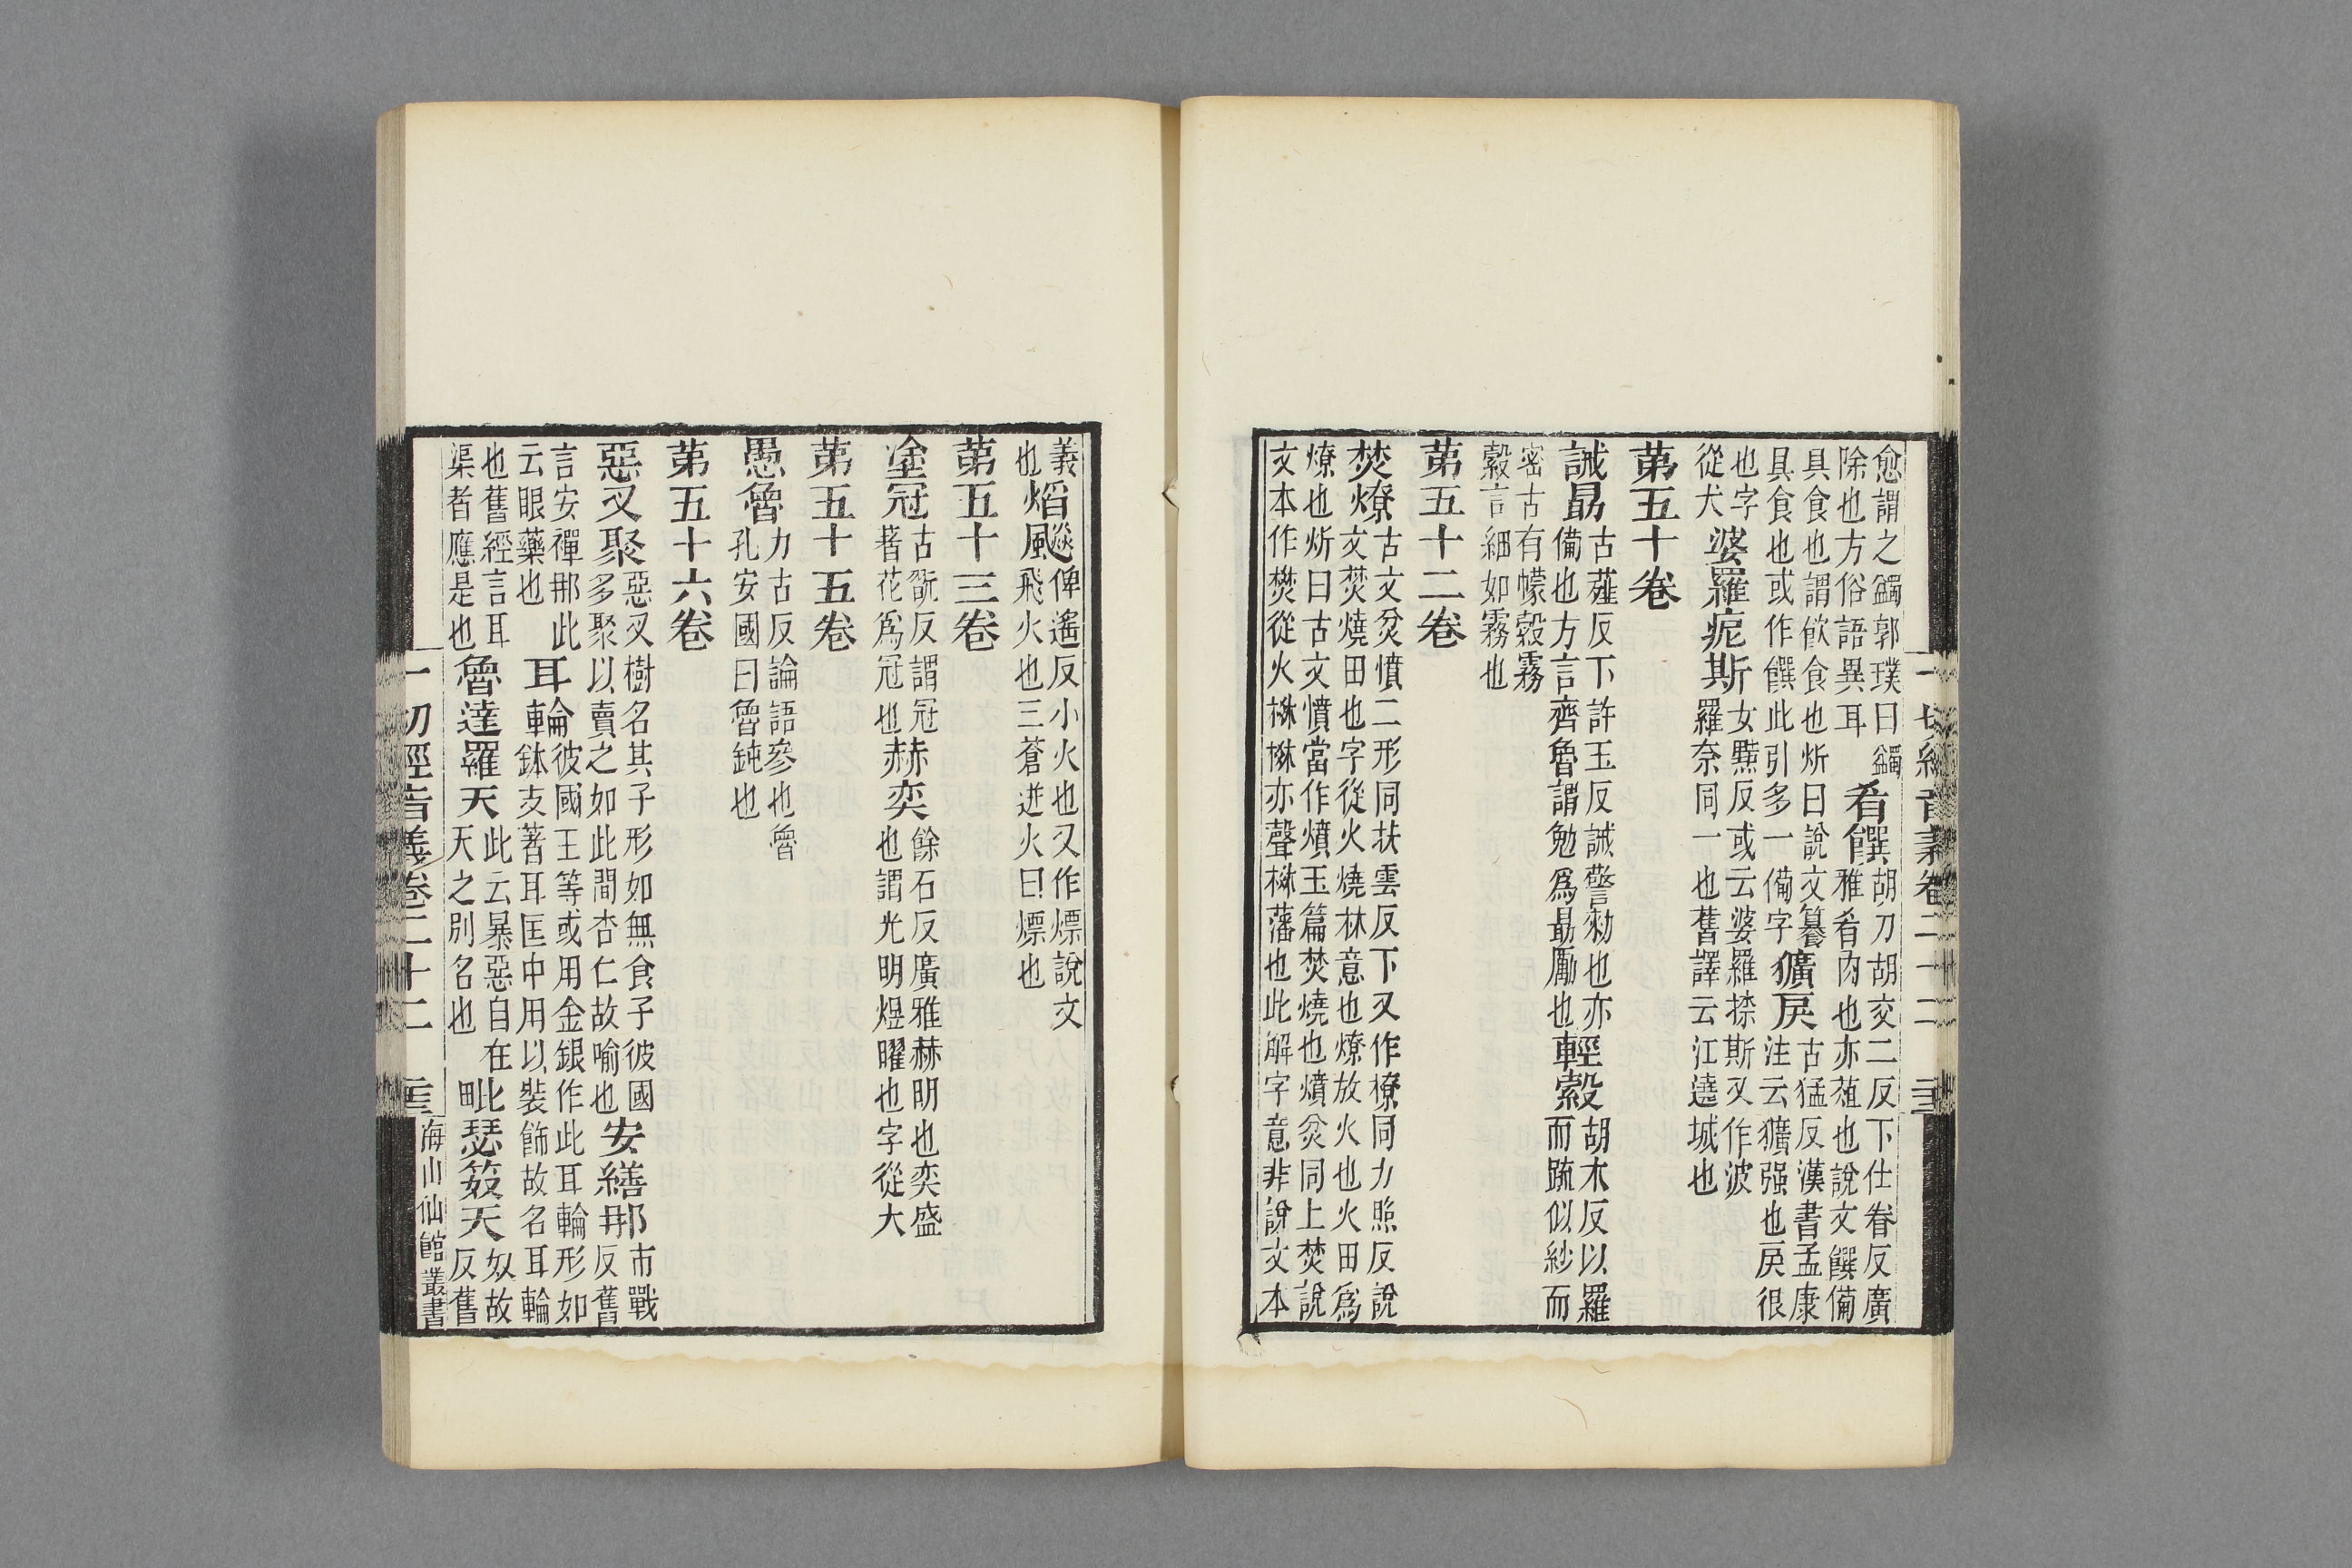 愈謂之蠲郭璞曰蠲
除也方俗語異耳
肴饌
胡刀胡交二反下仕眷反廣
雅肴肉也亦葅也說文饌備
具食也謂飲食也炘曰說文籑
具食也或作饌此引多一備字
獷戾
古猛反漢書孟康
注云獷强也戾很
也字
從犬
婆羅痆斯
女黠反或云婆羅㮏斯又作波
羅奈同一也舊譯云江遶城也
第五十卷
誡勗
古薤反下許玉反誡警勑也亦
備也方言齊魯謂勉爲勗勵也
輕縠
胡木反以羅
而䟽似紗而
密古有幪縠霧
縠言細如霧也
第五十二卷
焚燎
古文炃燌二形同扶雲反下又作𤊽同力照反說
文焚燒田也字從火燒林意也燎放火也火田爲
燎也炘曰古文燌當作燌玉篇焚燒也燌炃同上焚說
文本作樊從火棥棥亦聲棥藩也此解字意非說文本
義
也
焰飈
俾遙反小火也又作熛說文
飛火也三蒼迸火曰熛也
第五十三卷
塗冠
古翫反謂冠
著花爲冠也
赫奕
餘石反廣雅赫明也奕盛
也謂光明煜曜也字從大
第五十五卷
愚魯
力古反論語參也魯
孔安國曰魯鈍也
第五十六卷
惡叉聚
惡叉樹名其子形如無食子彼國
多聚以賣之如此間杏仁故喻也
安繕那
市戰
反舊
言安禪那此
云眼藥也
耳輪
彼國王等或用金銀作此耳輪形如
車鉢支著耳匡中用以裝飾故名耳輪
也舊經言耳
渠者應是也
魯達羅天
此云暴惡自在
天之別名也
毗瑟笯天
奴故
反舊
一切經音義卷二十二
海山仙館叢書